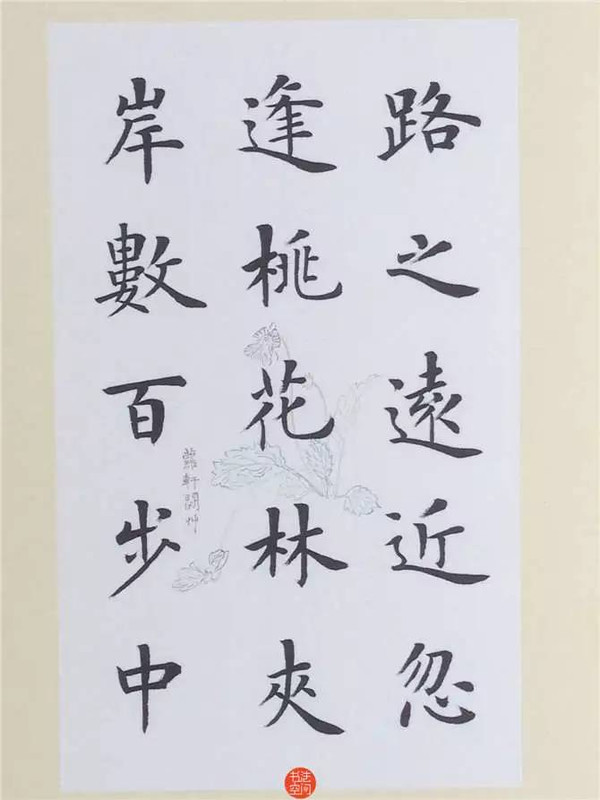 路之遠近忽
逢桃花林夾
岸數百步中
书法
空间